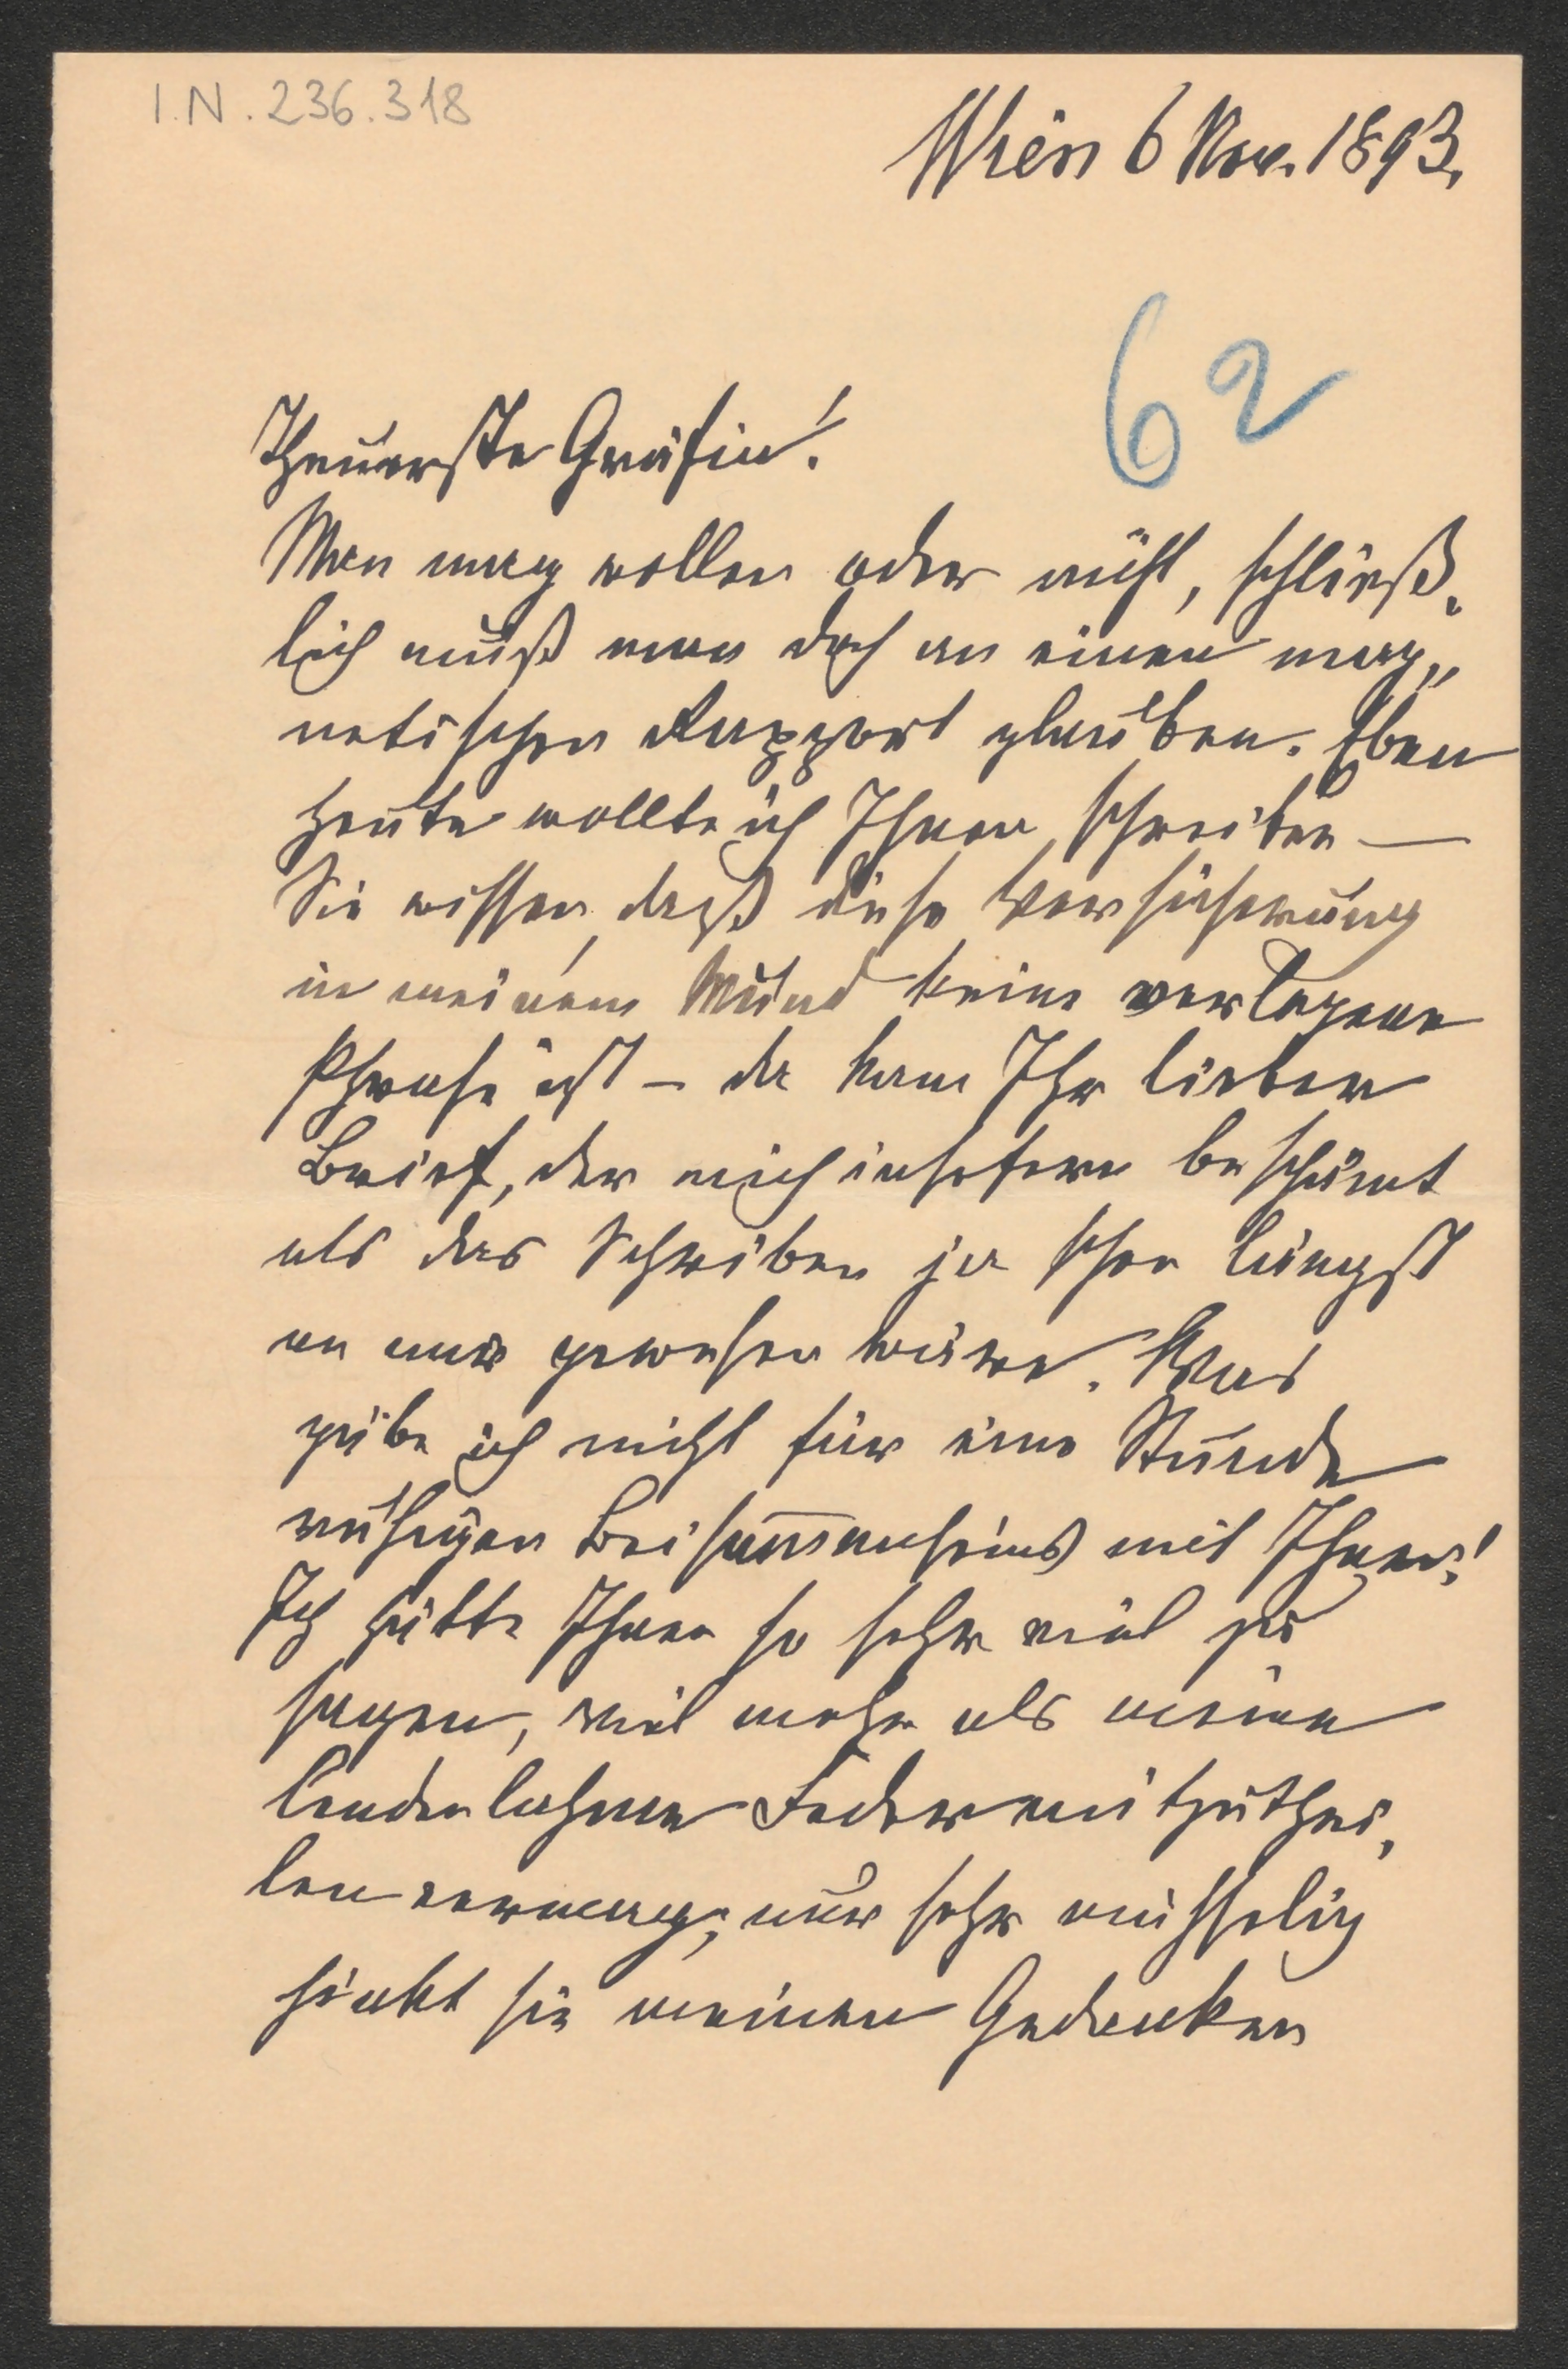 I.N. 236.318
Wien 6 Nov. 1893.
62
Theuerste Gräfin!
Man mag wollen oder nicht, schließ-
lich muß man doch an einen mag-
netischen Rapport glauben. Eben
heute wollte ich Ihnen schreiben –
Sie wissen, daß diese Versicherung
in meinem Mund keine verlogene
Phrase ist – da kam Ihr lieber
Brief, der mich insofern beschämt
als das Schreiben ja schon längst
an mir gewesen wäre. Was
gäbe ich nicht für eine Stunde
ruhigen Beisammenseins mit Ihnen!
Ich hätte Ihnen so sehr viel zu
sagen, viel mehr als meine
lendenlahme Feder mitzuthei-
len vermag; nur sehr mühselig
hinkt sie meinen Gedanken